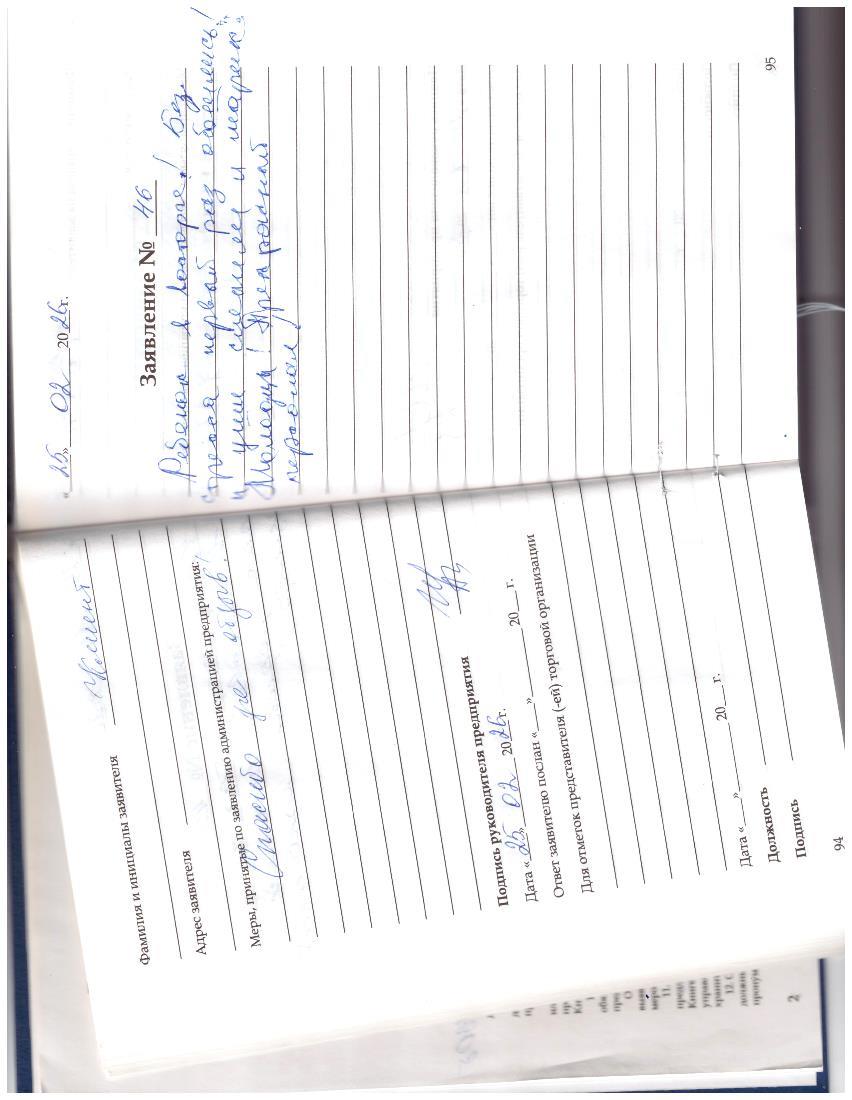 Фамилия и инициалы заявителя Клиент
Адрес заявителя
Меры, принятые по заявлению администрацией предприятия:
Спасибо за отзыв!
Подпись руководителя предприятия
Дата «25» 02 2026г.
Ответ заявителю послан «___»________20___г.
Для отметок представителя (-ей) торговой организации
Дата «___»________20___г.
Должность
Подпись
94
«25» 02 2026г.
Заявление № 46
Ребенок в восторге! Без
стресса первый раз
и уши
Молодцы! Прекрасный
персонал!
95
2